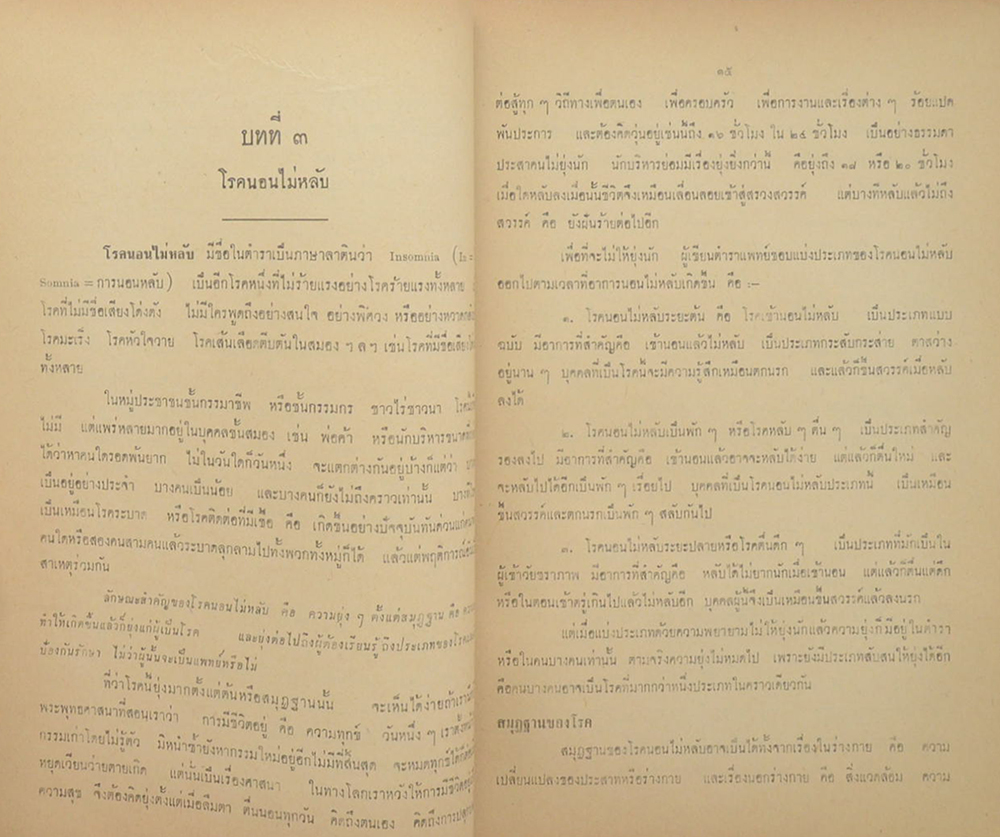 บทที่ ๓
โรคนอนไม่หลับ
โรคนอนไม่หลับ มีชื่อในตำราเป็นภาษาลาตินว่า Insomnia (In=
Somnia = การนอนหลับ) เป็นอีกโรคหนึ่งที่ไม่ร้ายแรงอย่างโรคร้ายแรงทั้งหลาย
โรคที่ไม่มีชื่อเสียงโด่งดัง ไม่มีใครพูดถึงอย่างสนใจ อย่างพิศวง หรืออย่างหวาด
โรคมะเร็ง โรคหัวใจวาย โรคเส้นเลือดตีบตันในสมอง ฯลฯ เช่นโรคที่มีชื่อเสียง
ทั้งหลาย
ในหมู่ประชาชนชั้นกรรมาชีพ หรือชั้นกรรมกร ชาวไร่ชาวนา
ไม่มี แต่แพร่หลายมากอยู่ในบุคคลชั้นสมอง เช่น พ่อค้า หรือนักบริหาร
ได้ว่าหาคนใดรอดพ้นยาก ไม่ในวันใดก็วันหนึ่ง จะแตกต่างกันอยู่บ้างก็แต่ว่า
เป็นอยู่อย่างประจำ บางคนเป็นน้อย และบางคนก็ยังไม่ถึงคราวเท่านั้น
เป็นเหมือนโรคระบาด หรือโรคติดต่อที่มีเชื้อ คือ เกิดขึ้นอย่างปัจจุบันทันด่วนแก่
คนใดหรือสองคนสามคนแล้วระบาดลุกลามไปทั้งพวกทั้งหมู่ก็ได้ แล้วแต่พฤติการณ์
สาเหตุร่วมกัน
ลักษณะสำคัญของโรคนอนไม่หลับ คือ ความยุ่ง ๆ ตั้งแต่สมุฏฐาน คือ
ทำให้เกิดขึ้นแล้วก็ยุ่งแก่ผู้เป็นโรค และยุ่งต่อไปถึงผู้ต้องเรียนรู้ถึงประเภทของโรค
ป้องกันรักษา ไม่ว่าผู้นั้นจะเป็นแพทย์หรือไม่
ที่ว่าโรคนี้ยุ่งมากตั้งแต่ต้นหรือสมุฏฐานนั้น จะเห็นได้ง่ายถ้าเรา
พระพุทธศาสนาที่สอนเราว่า การมีชีวิตอยู่ คือ ความทุกข์ วันหนึ่ง ๆ เราต้อง
กรรมเก่าโดยไม่รู้ตัว มิหนำซ้ำยังหากรรมใหม่อยู่อีกไม่มีที่สิ้นสุด จะหมดทุกข์ได้
หยุดเวียนว่ายตายเกิด แต่นั่นเป็นเรื่องศาสนา ในทางโลกเราหวังให้การมีชีวิต
ความสุข จึงต้องคิดยุ่งตั้งแต่เมื่อลืมตา ตื่นนอนทุกวัน คิดถึงตนเอง คิดถึงการ
๑๕
ต่อสู้ทุก ๆ วิถีทางเพื่อตนเอง เพื่อครอบครัว เพื่อการงานและเรื่องต่าง ๆ ร้อยแปด
พันประการ และต้องคิดวุ่นอยู่เช่นนี้ถึง ๑๖ ชั่วโมง ใน ๒๔ ชั่วโมง เป็นอย่างธรรมดา
ประสาคนไม่ยุ่งนัก นักบริหารย่อมมีเรื่องยุ่งยิ่งกว่านี้ คือยุ่งถึง ๑๘ หรือ ๒๐ ชั่วโมง
เมื่อใดหลับลงเมื่อนั้นชีวิตจึงเหมือนเลื่อนลอยเข้าสู่สรวงสวรรค์ แต่บางทีหลับแล้วไม่ถึง
สวรรค์ คือ ยังฝันร้ายต่อไปอีก
เพื่อที่จะไม่ให้ยุ่งนัก ผู้เขียนตำราแพทย์ชอบแบ่งประเภทของโรคนอนไม่หลับ
ออกไปตามเวลาที่อาการนอนไม่หลับเกิดขึ้น คือ :–
๑. โรคนอนไม่หลับระยะต้น คือ โรคเข้านอนไม่หลับ เป็นประเภทแบบ
ฉบับ มีอาการที่สำคัญคือ เข้านอนแล้วไม่หลับ เป็นประเภทกระสับกระส่าย ตาสว่าง
อยู่นาน ๆ บุคคลที่เป็นโรคนี้จะมีความรู้สึกเหมือนตกนรก และแล้วก็ขึ้นสวรรค์เมื่อหลับ
ลงได้
๒. โรคนอนไม่หลับเป็นพัก ๆ หรือโรคหลับ ๆ ตื่น ๆ เป็นประเภทสำคัญ
รองลงไป มีอาการที่สำคัญคือ เข้านอนแล้วอาจจะหลับได้ง่าย แต่แล้วก็ตื่นใหม่ และ
จะหลับไปได้อีกเป็นพัก ๆ เรื่อยไป บุคคลที่เป็นโรคนอนไม่หลับประเภทนี้ เป็นเหมือน
ขึ้นสวรรค์และตกนรกเป็นพัก ๆ สลับกันไป
๓. โรคนอนไม่หลับระยะปลายหรือโรคตื่นดึก ๆ เป็นประเภทที่มักเป็นใน
ผู้เข้าวัยชราภาพ มีอาการที่สำคัญคือ หลับได้ไม่ยากนักเมื่อเข้านอน แต่แล้วก็ตื่นแต่ดึก
หรือในตอนเช้าตรู่เกินไปแล้วไม่หลับอีก บุคคลผู้นี้จึงเป็นเหมือนขึ้นสวรรค์แล้วลงนรก
แต่เมื่อแบ่งประเภทด้วยความพยายามไม่ให้ยุ่งนักแล้วความยุ่งก็มีอยู่ในตำรา
หรือในคนบางคนเท่านั้น ตามจริงความยุ่งไม่หมดไป เพราะยังมีประเภทสับสนให้ยุ่งได้อีก
คือคนบางคนอาจเป็นโรคที่มากกว่าหนึ่งประเภทในคราวเดียวกัน
สมุฏฐานของโรค
สมุฏฐานของโรคนอนไม่หลับอาจเป็นได้ทั้งจากเรื่องในร่างกาย คือ ความ
เปลี่ยนแปลงของประสาทหรือร่างกาย และเรื่องนอกร่างกาย คือ สิ่งแวดล้อม ความ